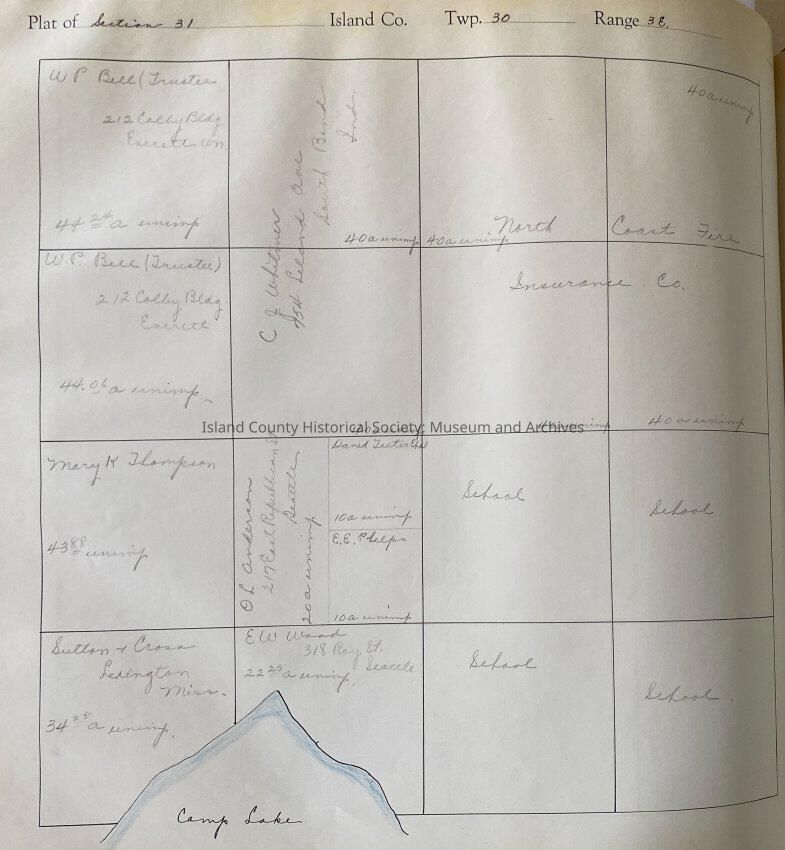 Plat of Section 31 Island Co. Twp. 30 Range 3 E.
W P Bell (Trustee
212 Colby Bldg
Everett Wn.
44 24 a unimp
C J Whitmer
South Bend
Ind.
40a unimp
40a unimp
40a unimp
North Coast Fire
Insurance Co.
W. P. Bell (Trustee)
212 Colby Bldg
Everett
44.06 a unimp
40a unimp
Island County Historical Society: Museum and Archives
Mary K Thompson
43 88 unimp
O L Anderson
217 East Republican St
Seattle
20a unimp
David Teeter
10a unimp
E. E. Phelps
10a unimp
School
School
Sutton & Cross
Lexington
Miss.
34 25 a unimp.
E W Wood
318 Roy St.
Seattle
22 25 a unimp.
School
School
Camp Lake